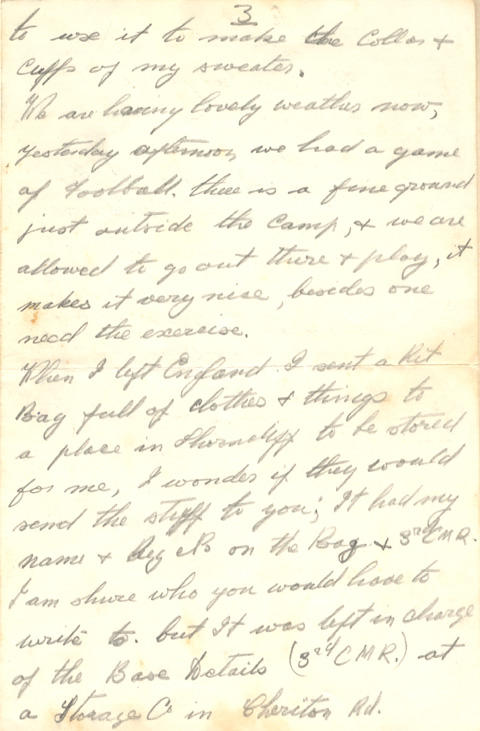 3
to use it to make the Collar +
Cuffs of my sweater.
We are having lovely weather now,
yesterday afternoon, we had a game
of Football. there is a fine ground
just outside the Camp, + we are
allowed to go out there + play, it
makes it very nise, besides one
need the exercise.
When I left England I sent a Kit
Bag full of clothes + things to
a place in Shorncliff to be stored
for me, I wonder if they would
send the stuff to you; It had my
name + Reg No on the Bag + 3rd C M R.
I am shure who you would have to
write to. but It was left in charge
of the Base Details (3rd C M R.) at
a Storage Co in Cheriton Rd.